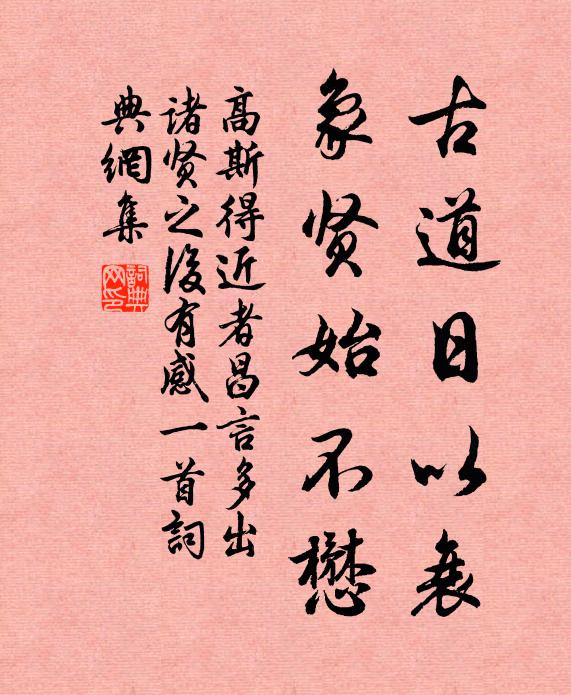 古道日以衰
象贤始不懋
高斯得近者昌言多出
诸贤之后有感一首詞
典網集
詞典网印